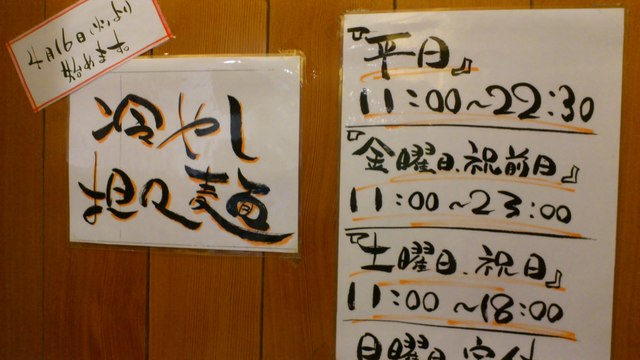 4月16日(火)より
始めます
冷やし
担々麺
『平日』
11:00~22:30
『金曜日、祝前日』
11:00~23:00
『土曜日、祝日』
11:00~18:00
日曜日、定休